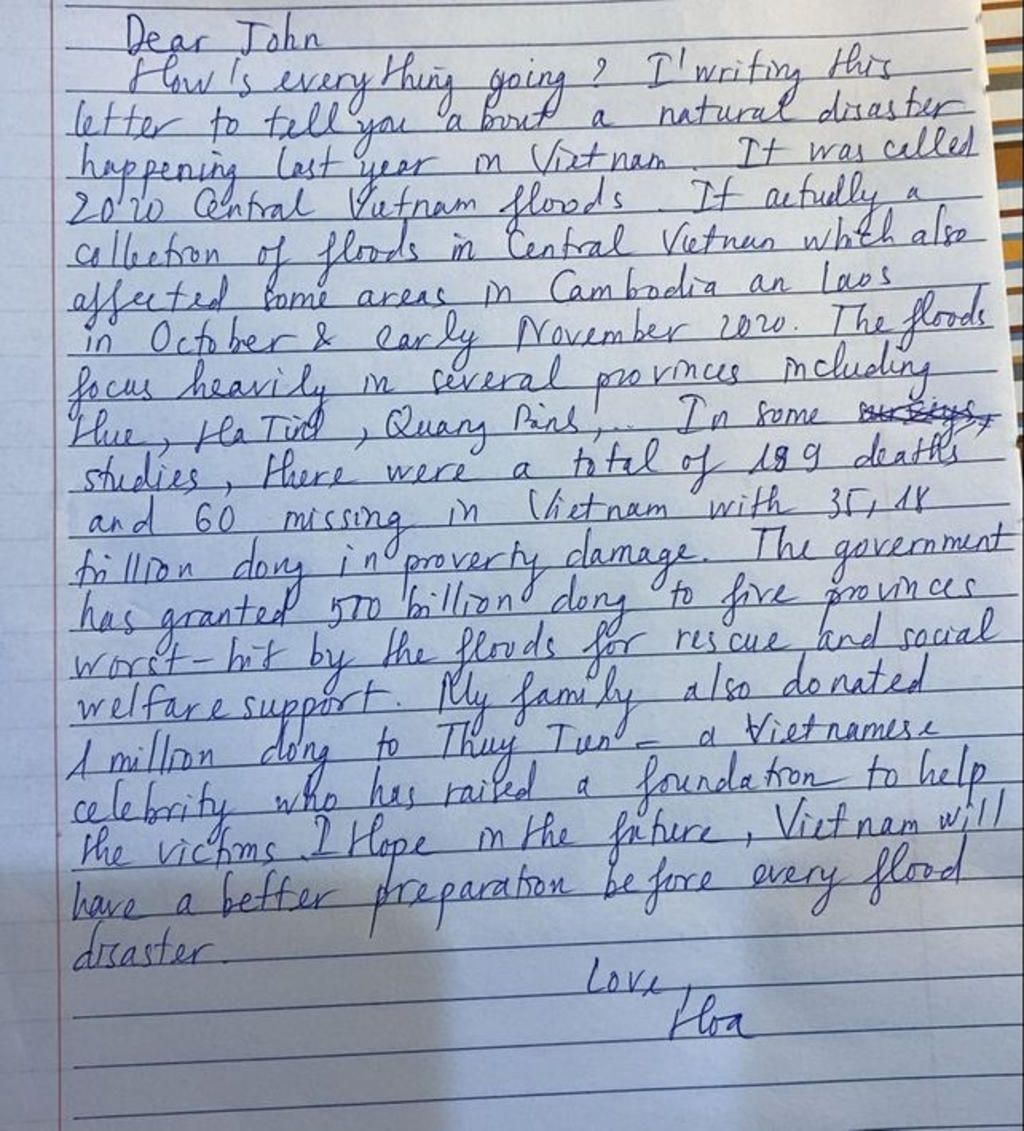 Dear John
How's everything going? I'writing this
letter to tell you about a natural disaster
happening last year in Vietnam. It was called
2020 Central Vietnam floods. It actually a
collection of floods in Central Vietnam which also
affected some areas in Cambodia an Laos
in October & early November 2020. The floods
focus heavily in several provinces including
Hue, Ha Tinh, Quang Binh,... In some
studies, there were a total of 189 deaths
and 60 missing in Vietnam with 35,18
trillion dong in proverty damage. The government
has granted 500 billion dong to five provinces
worst-hit by the floods for rescue and social
welfare support. My family also donated
1 million dong to Thuy Tien - a Vietnamese
celebrity who has raised a foundation to help
the victims. I Hope in the future, Vietnam will
have a better preparation before every flood
disaster.
Love,
Hoa